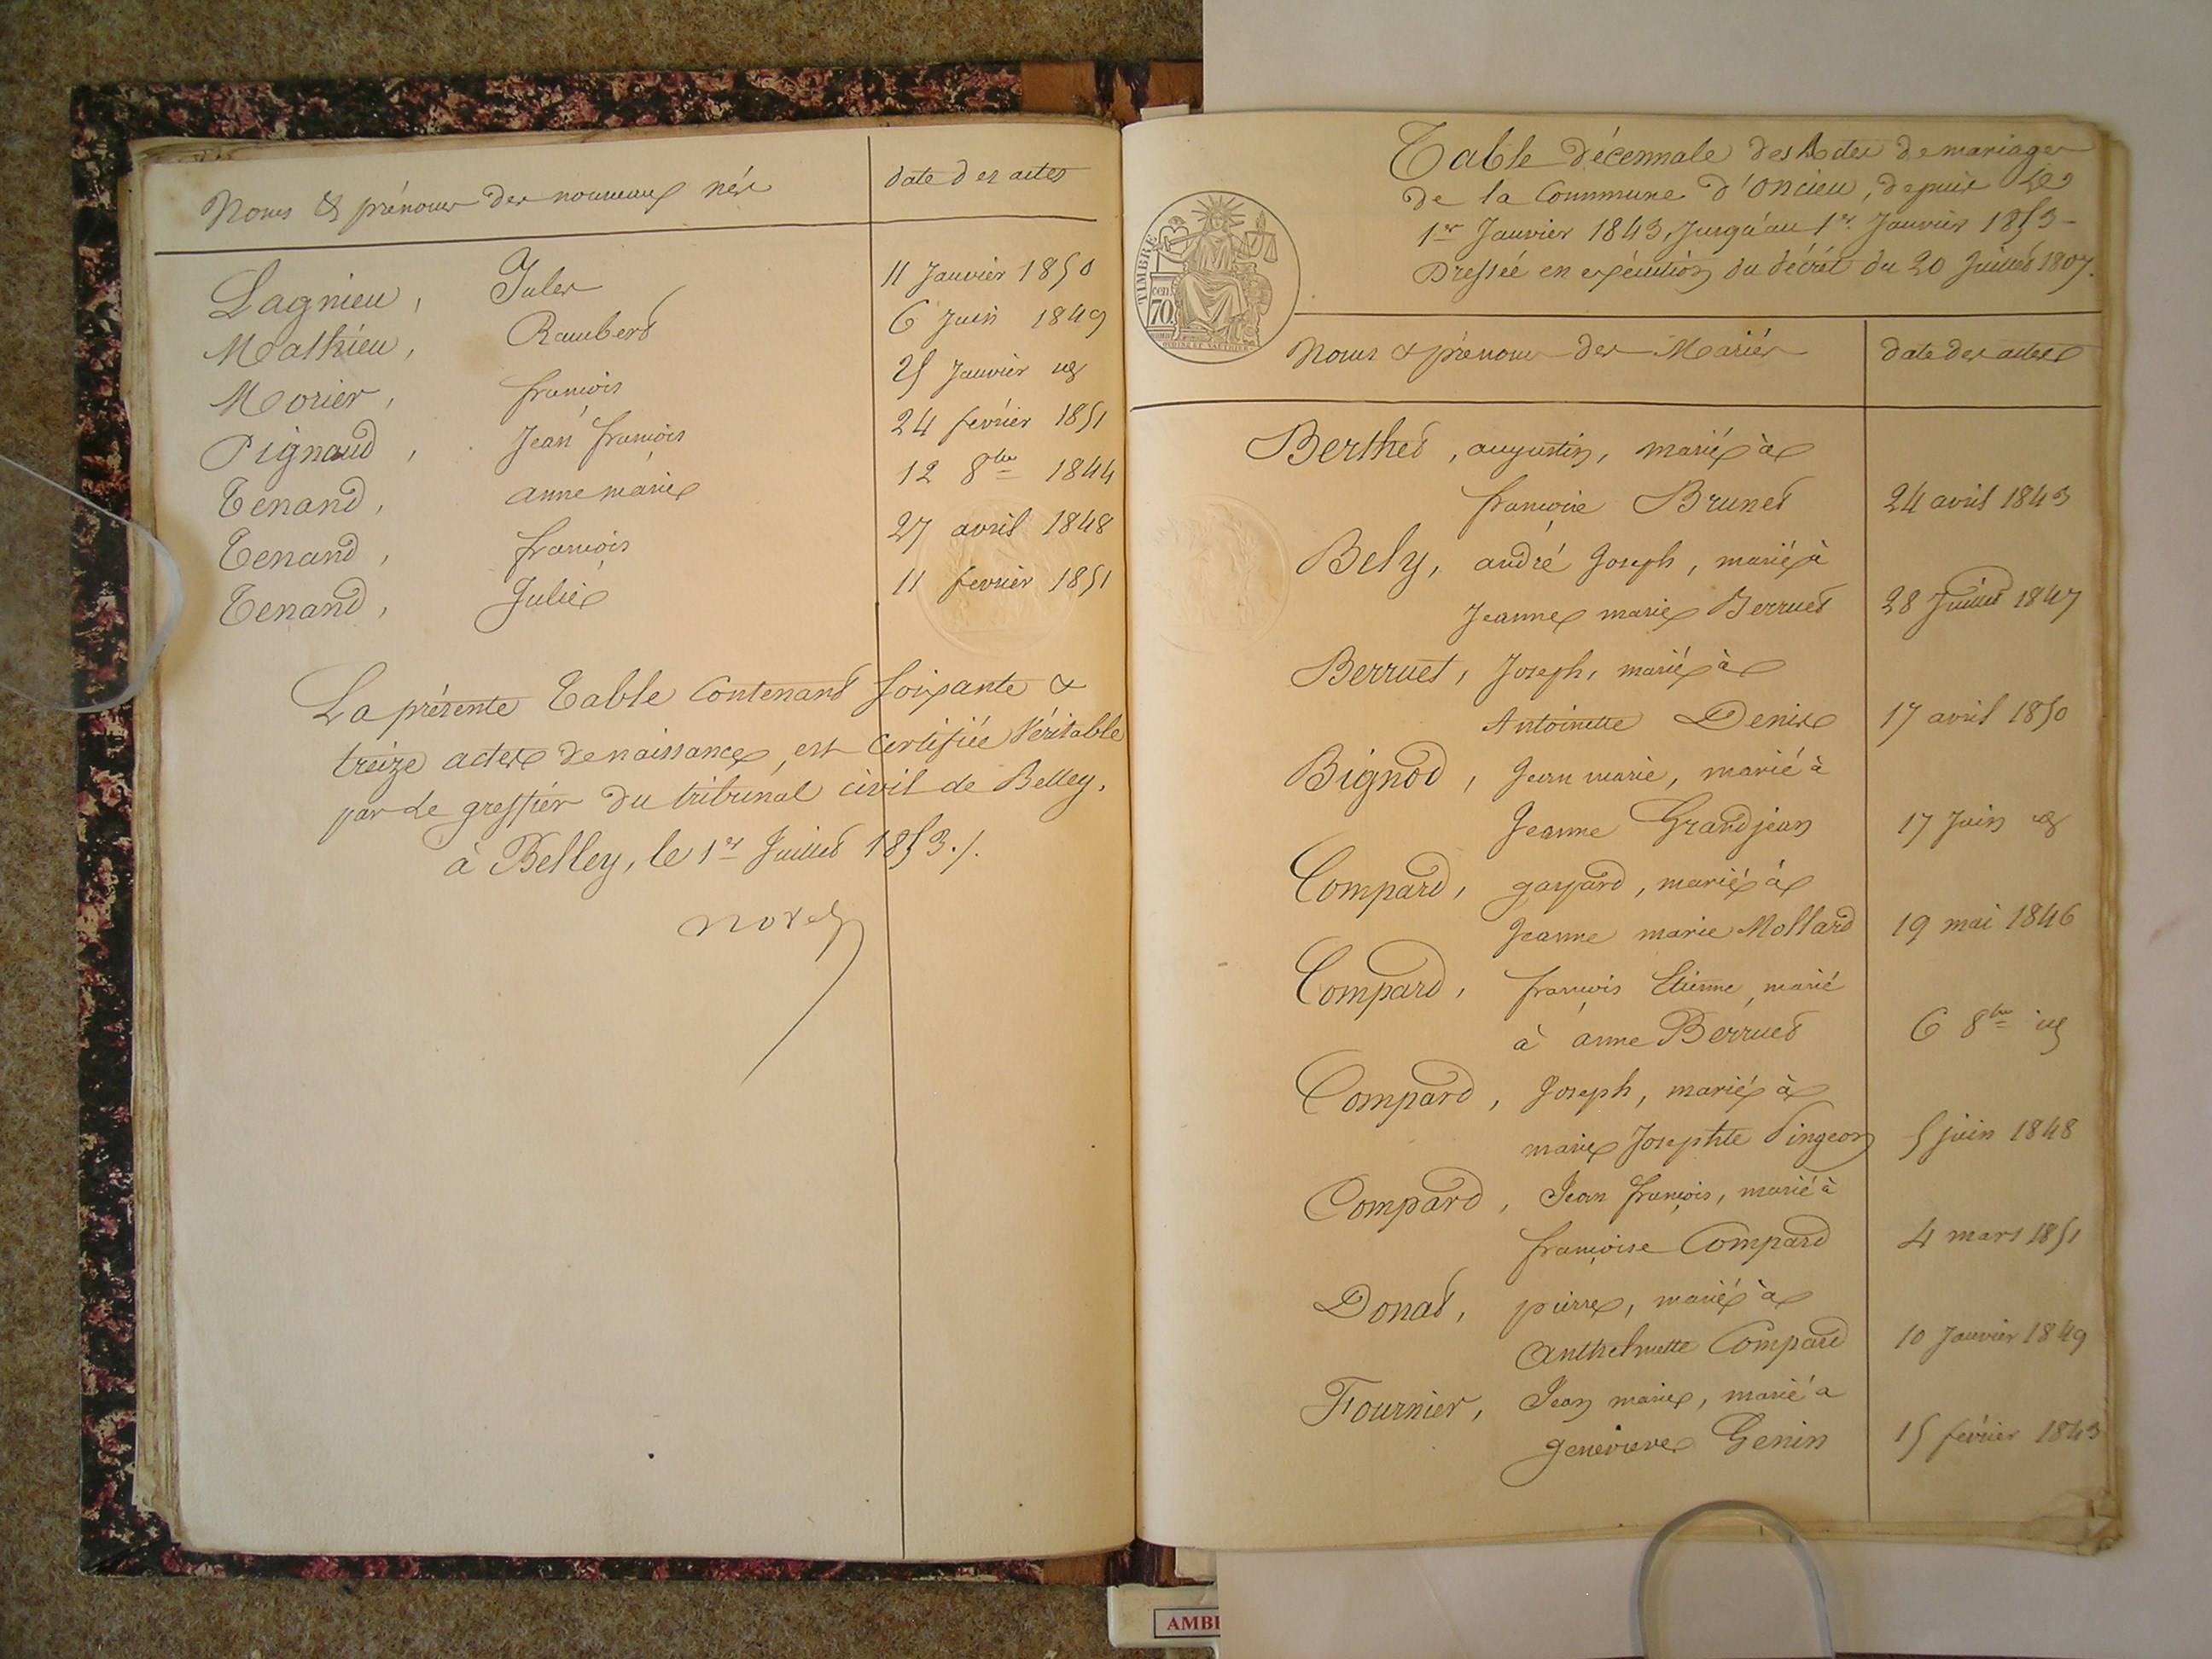 Noms & prénoms des nouveaux nés
date des actes
Lagnieu, Jules 11 Janvier 1850
Mathieu, Rambert 6 Juin 1849
Morier, françois 25 Janvier id
Pignaud, Jean françois 24 février 1851
Tenand, anne marie 12 8bre 1844
Tenand, françois 27 avril 1848
Tenand, Julie 11 fevrier 1851
La présente Table Contenant soixante &
treize actes de naissance, est Certifiée Véritable
par le greffier du tribunal civil de Belley.
à Belley, le 1er Juillet 1853./.
TIMBRE
cen.
70.
Table décennale des Actes de mariages
de la Commune d'Oncieu, depuis le
1er Janvier 1843, Jusqu'au 1er Janvier 1853-
Dressée en exécution du décret du 20 Juillet 1807.
Noms & prénoms des Mariés
date des actes
Berthet, augustin, marié à
françoise Brunet 24 avril 1843
Bely, andré Joseph, marié à
Jeanne marie Berruet 28 Juillet 1847
Berruet, Joseph, marié à
Antoinette Denise 17 avril 1850
Bignod, Jean marie, marié à
Jeanne Grandjean 17 Juin id
Compard, gaspard, marié à
Jeanne marie Mollard 19 mai 1846
Compard, françois Etienne, marié
à anne Berruet 6 8bre id
Compard, Joseph, marié à
marie Josephte Pingeon 5 juin 1848
Compard, Jean françois, marié à
françoise Compard 4 mars 1851
Donat, pierre, marié à
Anthelmette Compard 10 Janvier 1849
Fournier, Jean marie, marié a
genevieve Genin 15 février 1843